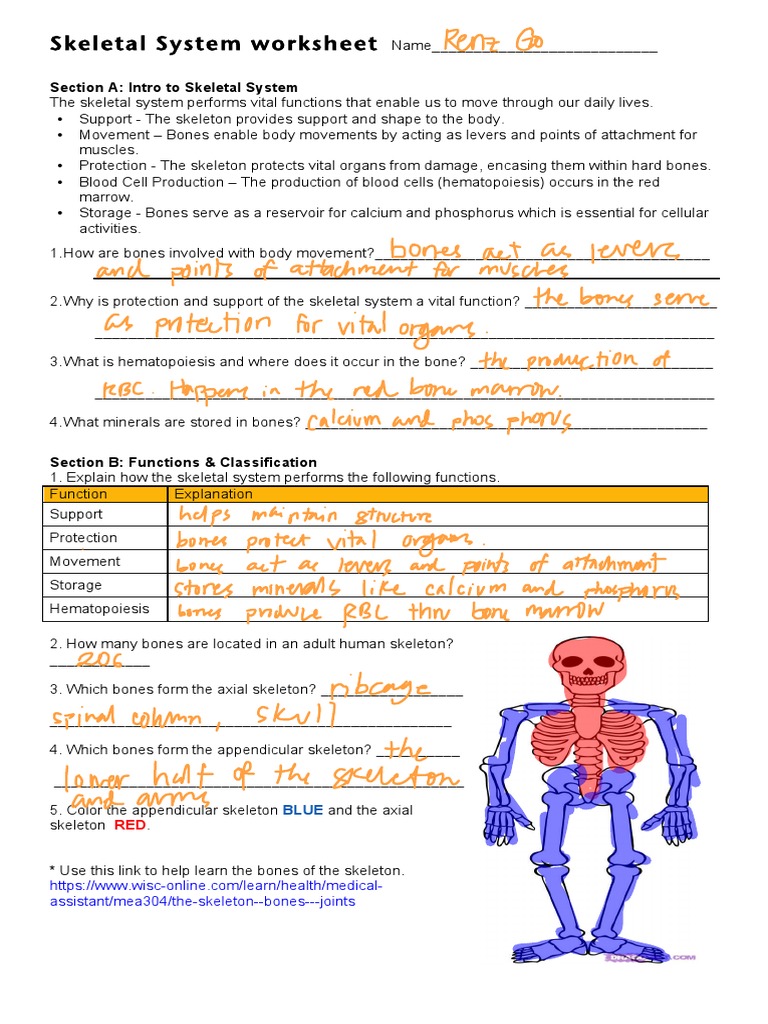 Skeletal System worksheet Name Renz Go
Section A: Intro to Skeletal System
The skeletal system performs vital functions that enable us to move through our daily lives.
• Support - The skeleton provides support and shape to the body.
• Movement – Bones enable body movements by acting as levers and points of attachment for
muscles.
• Protection - The skeleton protects vital organs from damage, encasing them within hard bones.
• Blood Cell Production – The production of blood cells (hematopoiesis) occurs in the red
marrow.
• Storage - Bones serve as a reservoir for calcium and phosphorus which is essential for cellular
activities.
1.How are bones involved with body movement? bones act as levers
and points of attachment for muscles
2.Why is protection and support of the skeletal system a vital function? the bones serve
as protection for vital organs.
3.What is hematopoiesis and where does it occur in the bone? the production of
RBC. Happens in the red bone marrow.
4.What minerals are stored in bones? calcium and phosphorus
Section B: Functions & Classification
1. Explain how the skeletal system performs the following functions.
Function Explanation
Support helps maintain structure
Protection bones protect vital organs.
Movement bones act as levers and points of attachment
Storage stores minerals like calcium and phosphorus
Hematopoiesis bones produce RBC thru bone marrow
2. How many bones are located in an adult human skeleton?
206
3. Which bones form the axial skeleton? ribcage
spinal column, skull
4. Which bones form the appendicular skeleton? the
lower half of the skeleton
and arms
5. Color the appendicular skeleton BLUE and the axial
skeleton RED.
* Use this link to help learn the bones of the skeleton.
https://www.wisc-online.com/learn/health/medical-
assistant/mea304/the-skeleton--bones---joints